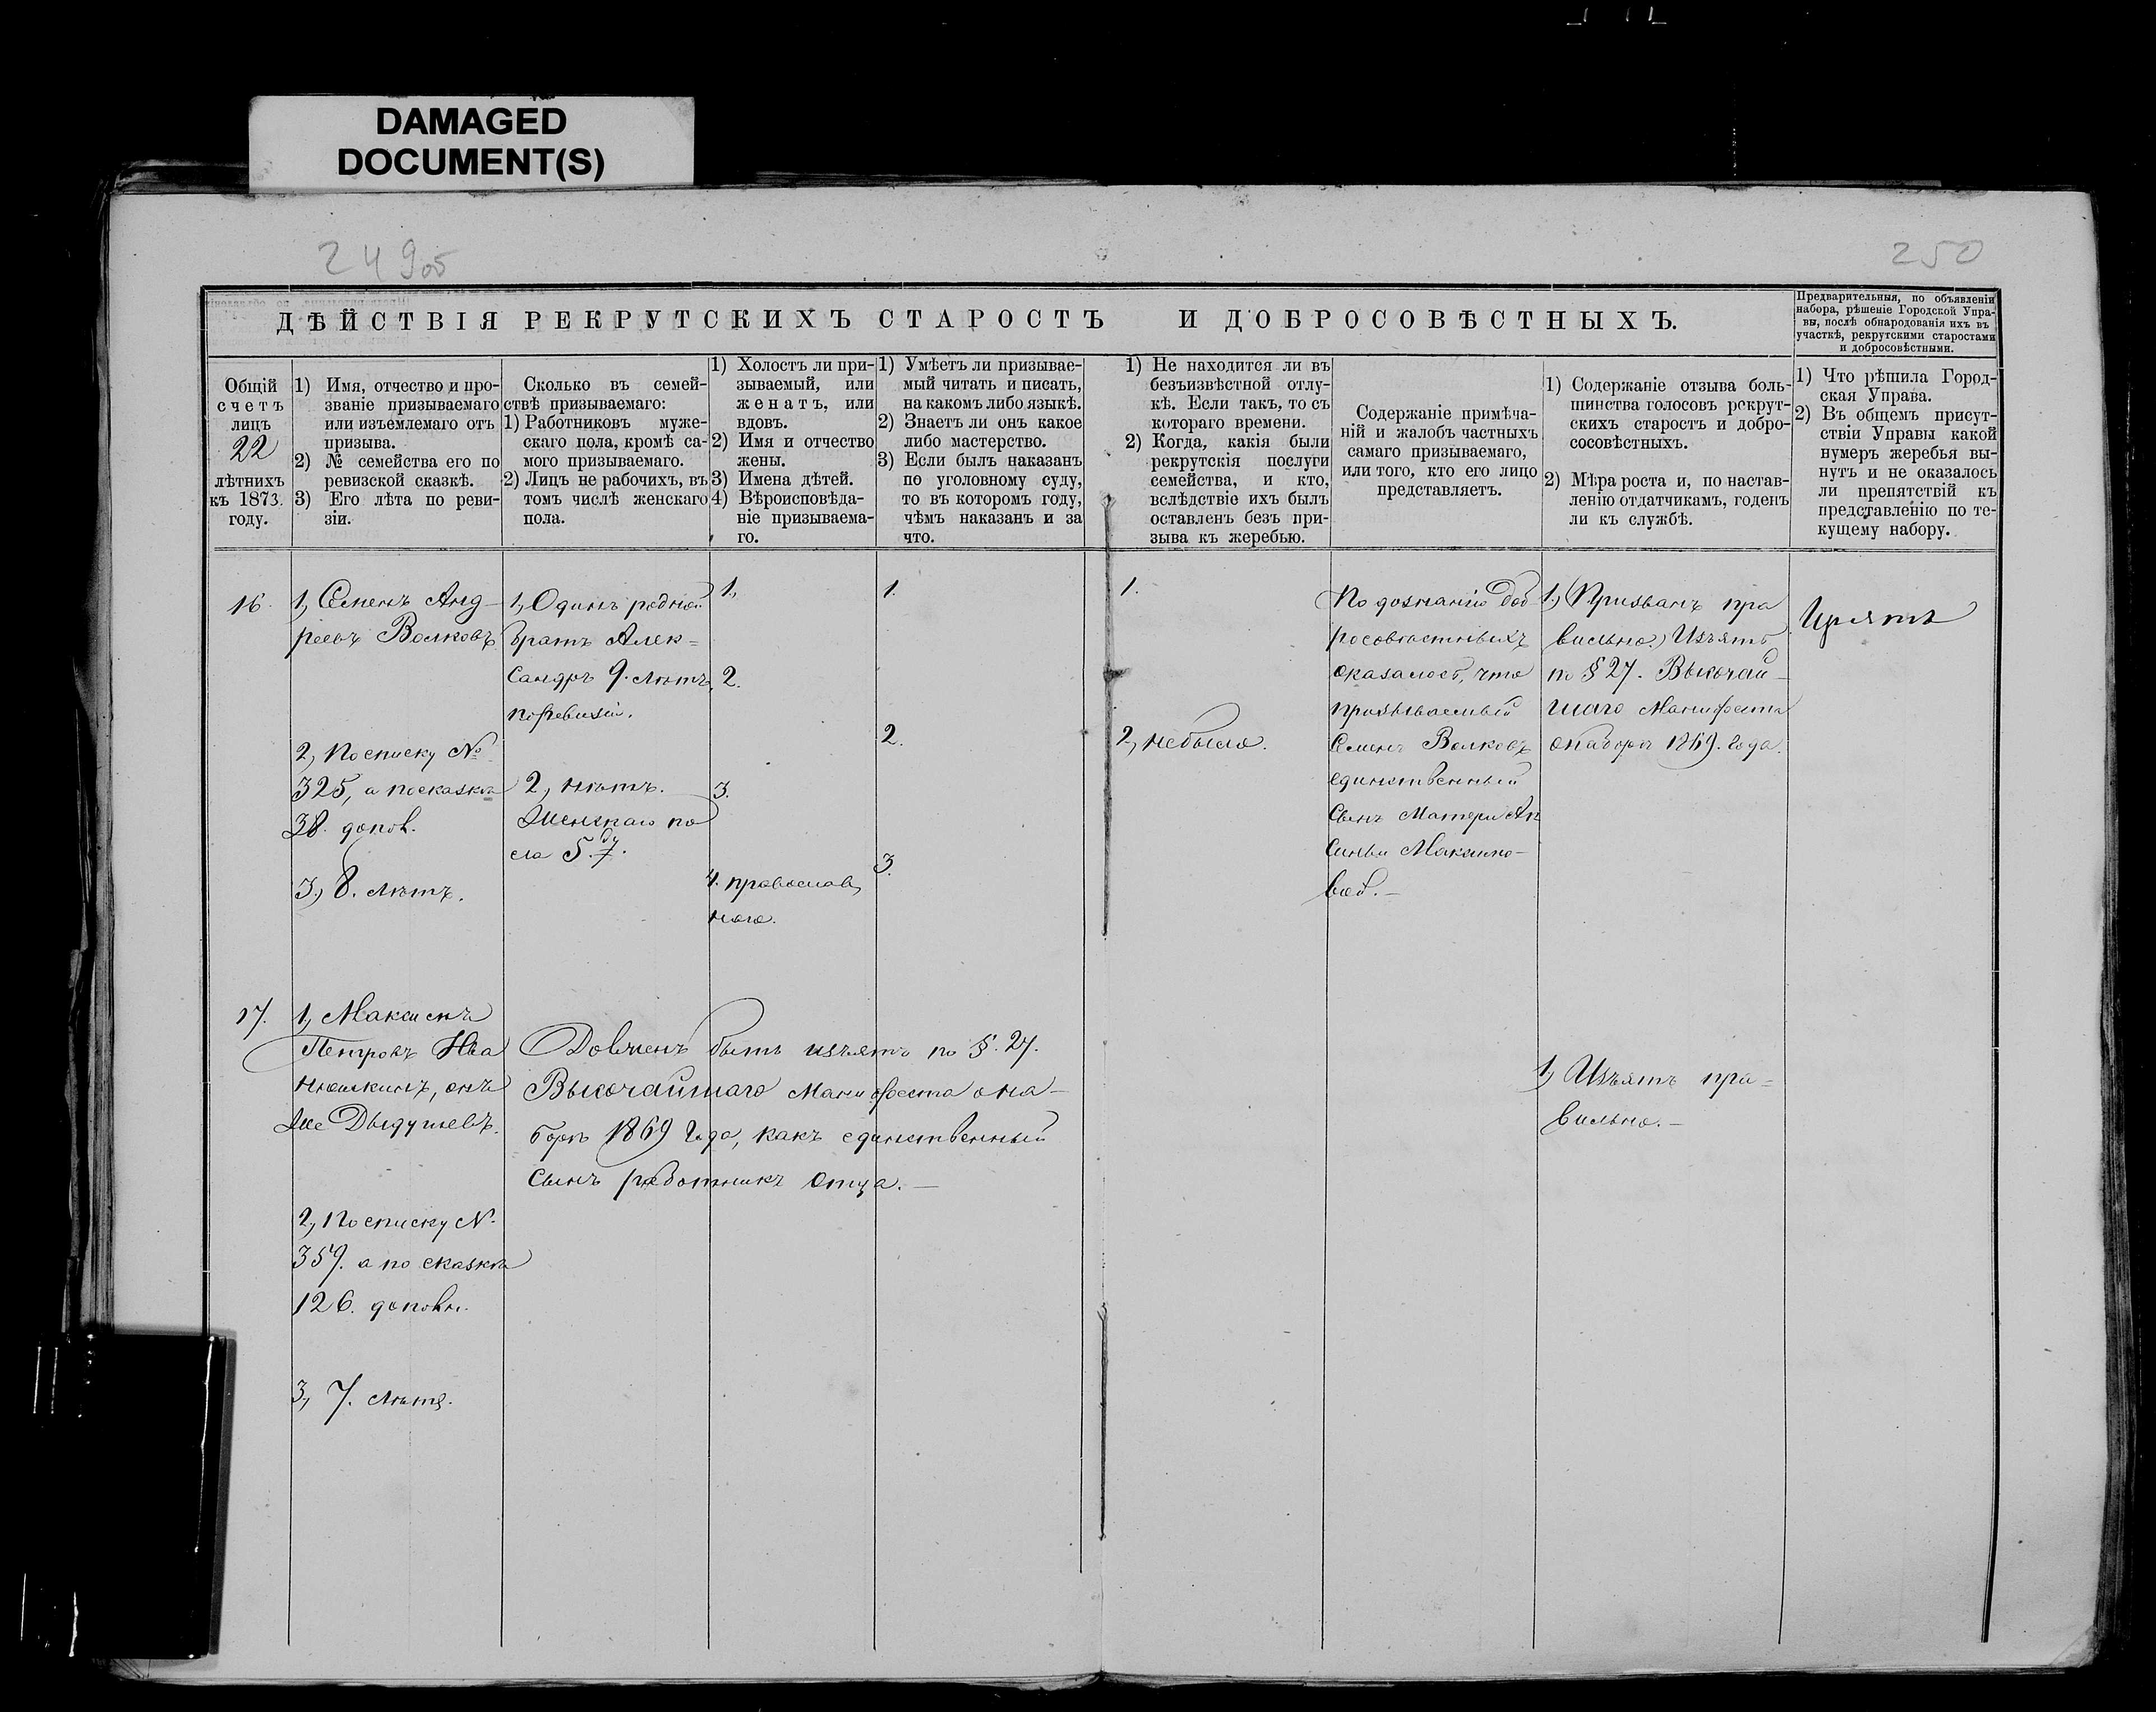 DAMAGED
DOCUMENT(S)
249об
250
ДѢЙСТВІЯ РЕКРУТСКИХЪ СТАРОСТЪ И ДОБРОСОВѢСТНЫХЪ.
Предварительныя, по объявленіи
набора, рѣшеніе Городской Упра-
вы, послѣ обнародованія ихъ въ
участкѣ, рекрутскими старостами
и добросовѣстными.
Общій
счетъ
лицъ
22
лѣтнихъ
къ 1873.
году.
1) Имя, отчество и про-
званіе призываемаго
или изъемлемаго отъ
призыва.
2) № семейства его по
ревизской сказкѣ.
3) Его лѣта по реви-
зіи.
Сколько въ семей-
ствѣ призываемаго:
1) Работниковъ муже-
скаго пола, кромѣ са-
мого призываемаго.
2) Лицъ не рабочихъ, въ
томъ числѣ женскаго
пола.
1) Холостъ ли при-
зываемый, или
женатъ, или
вдовъ.
2) Имя и отчество
жены.
3) Имена дѣтей.
4) Вѣроисповѣда-
ніе призываема-
го.
1) Умѣетъ ли призывае-
мый читать и писать,
на какомъ либо языкѣ.
2) Знаетъ ли онъ какое
либо мастерство.
3) Если былъ наказанъ
по уголовному суду,
то въ которомъ году,
чѣмъ наказанъ и за
что.
1) Не находится ли въ
безъизвѣстной отлу-
кѣ. Если такъ, то съ
котораго времени.
2) Когда, какія были
рекрутскія послуги
семейства, и кто,
вслѣдствіе ихъ былъ
оставленъ безъ при-
зыва къ жеребью.
Содержаніе примѣча-
ній и жалобъ частныхъ
самаго призываемаго,
или того, кто его лицо
представляетъ.
1) Содержаніе отзыва боль-
шинства голосовъ рекрут-
скихъ старостъ и добро-
сосовѣстныхъ.
2) Мѣра роста и, по настав-
ленію отдатчикамъ, годенъ
ли къ службѣ.
1) Что рѣшила Город-
ская Управа.
2) Въ общемъ присут-
ствіи Управы какой
нумеръ жеребья вы-
нутъ и не оказалось
ли препятствій къ
представленію по те-
кущему набору.
16.
1, Семенъ Анд-
реевъ Волковъ
2, По списку №
325, а по сказкѣ
38. допов.
3, 8. лѣтъ.
1, Одинъ родной
братъ Алек=
сандръ 9. лѣтъ
по ревизіи.
2, нѣтъ.
Женскаго по
ла 5.
1,
2.
3.
4. православ
наго.
1.
2.
3.
1.
2, не было.
По дознанію Доб-
росовѣстныхъ
оказалось, что
призываемый
Семенъ Волковъ
единственный
Сынъ Матери Ак
синьи Максимо-
вой.-
1, Призванъ пра
вильно. Изъять
по § 27. Высочай-
шаго Манифеста
о наборѣ 1869. года.
17.
1, Максимъ
Петровъ Ива
нюшкинъ, онъ
же Дыдушевъ.
2, По списку №
359. а по сказкѣ
126. доповн.
3, 7. лѣтъ.
Долженъ быть изъятъ по §. 27.
Высочайшаго Манифеста о на-
борѣ 1869 года, какъ единственный
Сынъ работникъ отца.-
1, Изъятъ пра=
вильно.-